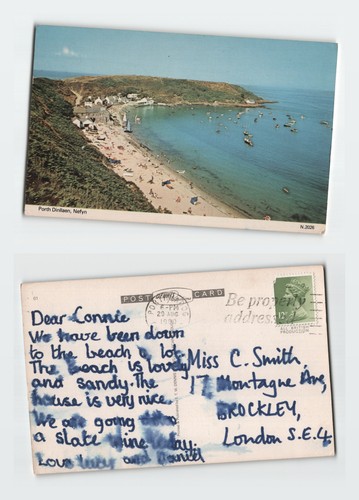 Porth Dinllaen, Nefyn
N.2026
POST CARD
29 AUG
1980
Be properly
addressed
12P
Dear Connie
We have been down
to the beach a lot
The beach is lovely
and sandy. The
house is very nice.
We are going
a slate mine today.
Love Lucy and
Miss C. Smith,
17 Montague Ave,
BROCKLEY,
London S.E.4